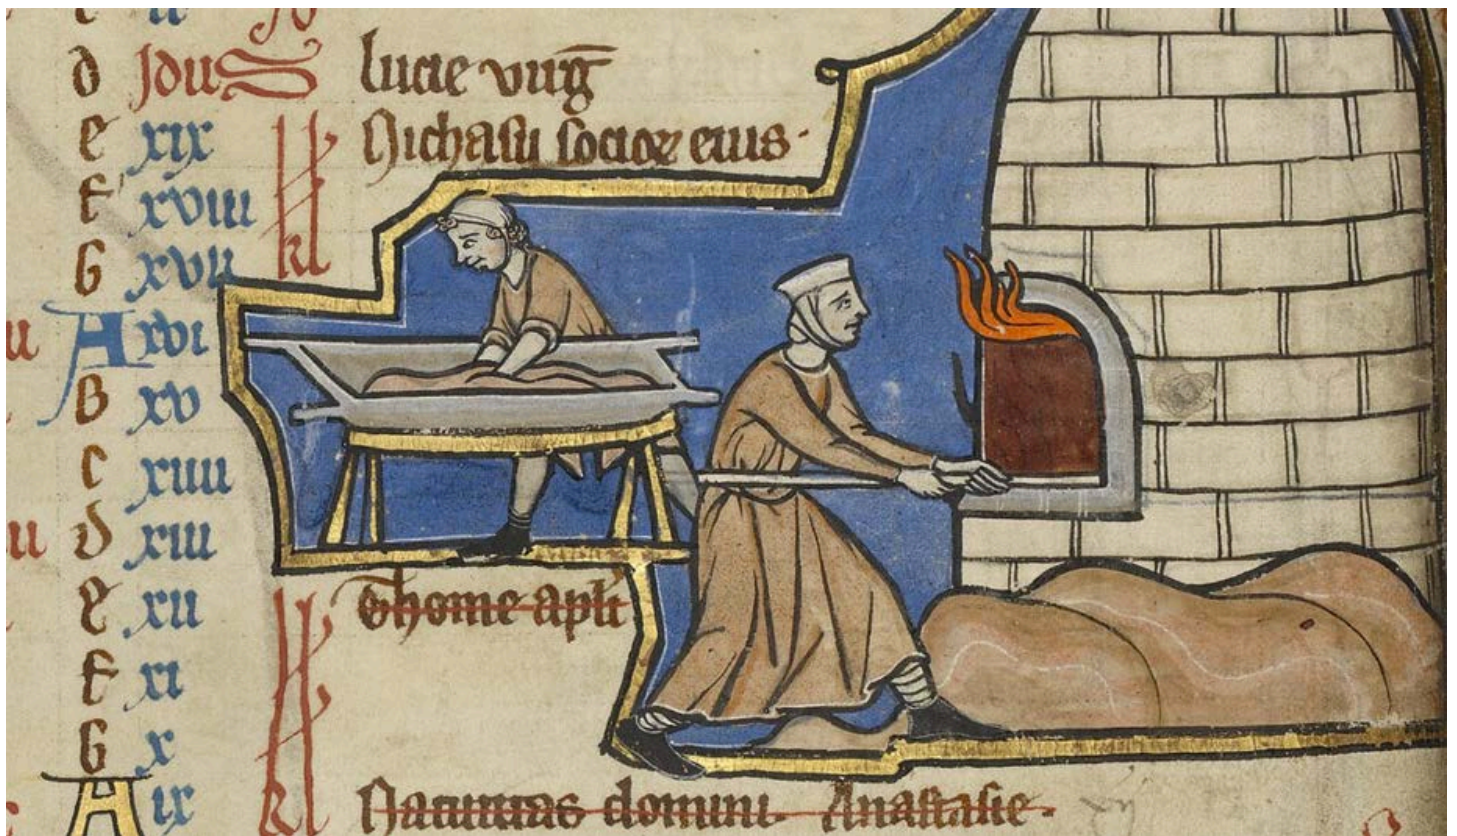 d Idus lucie virg̅
e xix kl Nichasii socioꝝ eius·
f xviii
G xvii kl
A xvi
B xv
c xiiii
d xiii
e xii kl Thome apli
f xi
G x
A ix kl Natiuitas domini. Anastasie.